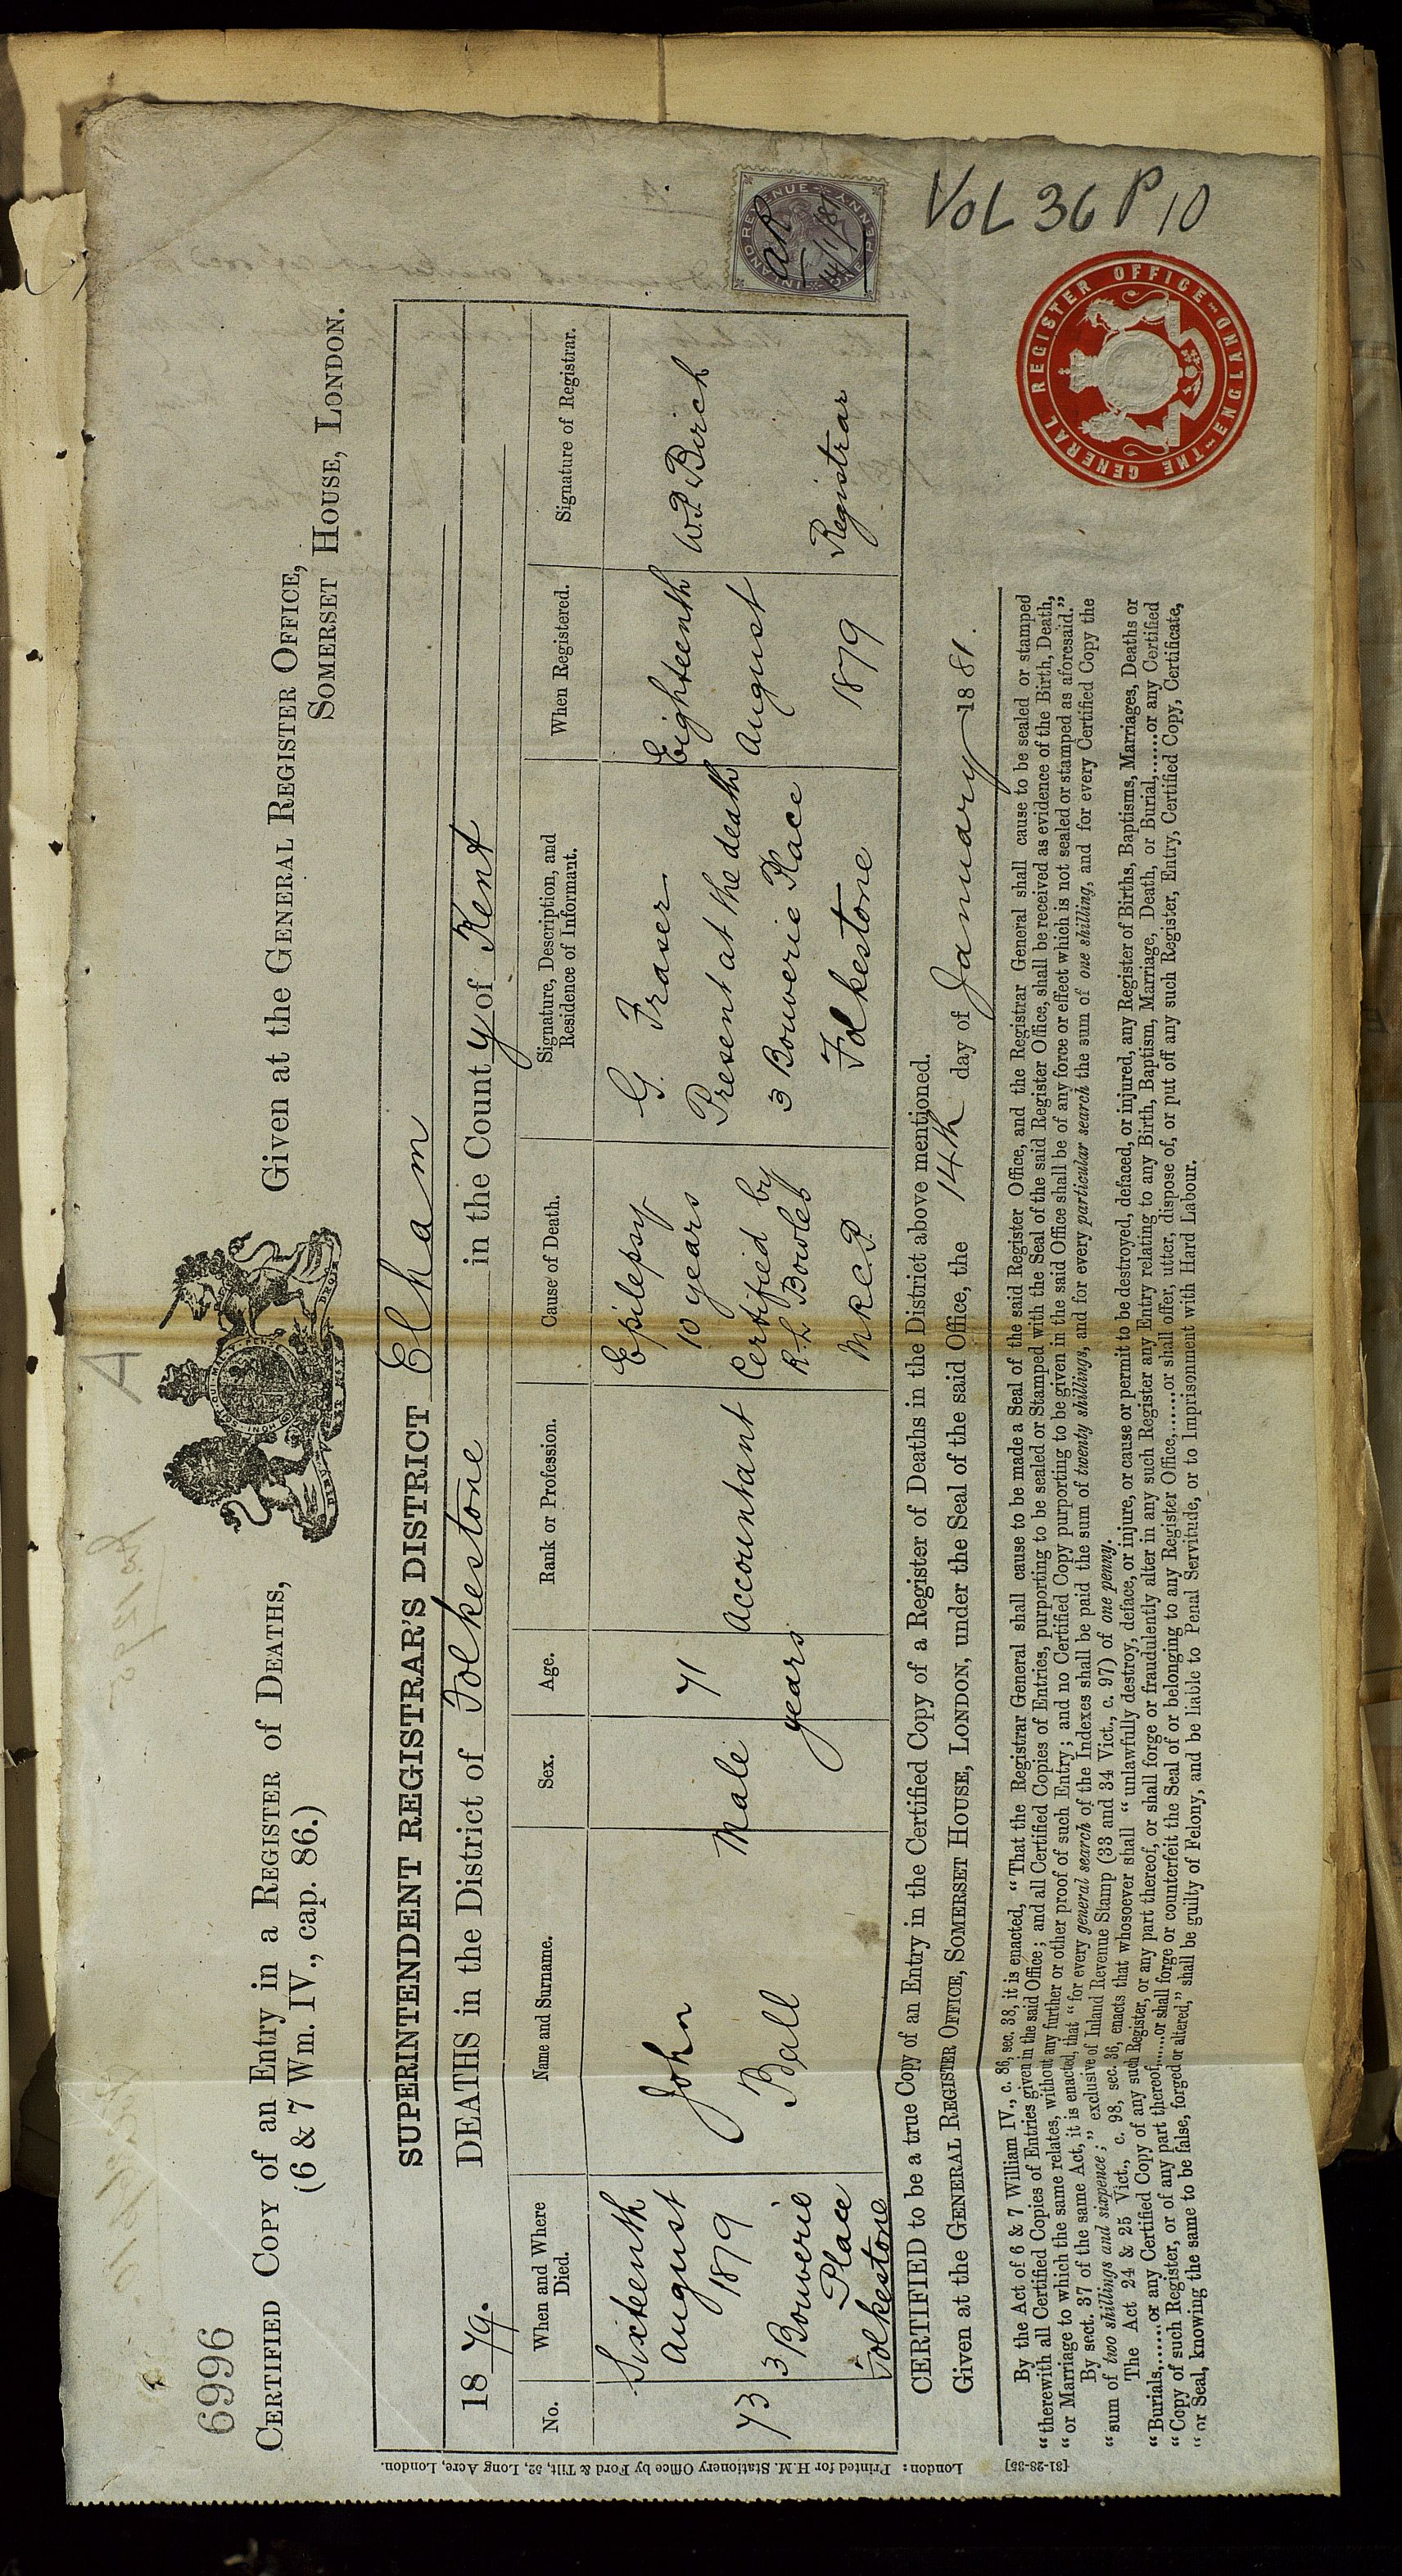 6996
CERTIFIED COPY of an Entry in a REGISTER of DEATHS,
(6 & 7 Wm. IV., cap. 86.)
Given at the GENERAL REGISTER OFFICE,
SOMERSET HOUSE, LONDON.
A
SUPERINTENDENT REGISTRAR'S DISTRICT Elham
1879. DEATHS in the District of Folkestone in the County of Kent
No.
When and Where
Died.
Name and Surname.
Sex.
Age.
Rank or Profession.
Cause of Death.
Signature, Description, and
Residence of Informant.
When Registered.
Signature of Registrar.
73
Sixteenth
August
1879
3 Bouverie
Place
Folkestone
John
Ball
Male
71
years
Accountant
Epilepsy
10 years
Certified by
R. L. Bowles
M R C P.
G. Fraser
Present at the death
3 Bouverie Place
Folkestone
Eighteenth
August
1879
W. P. Birch
Registrar
INLAND REVENUE
ONE PENNY
14/1/81
VOL 36 P 10
CERTIFIED to be a true Copy of an Entry in the Certified Copy of a Register of Deaths in the District above mentioned.
Given at the GENERAL REGISTER OFFICE, SOMERSET HOUSE, LONDON, under the Seal of the said Office, the 14th day of January 1881.
By the Act of 6 & 7 William IV., c. 86, sec. 38, it is enacted, "That the Registrar General shall cause to be made a Seal of the said Register Office, and the Registrar General shall cause to be sealed or stamped
"therewith all Certified Copies of Entries given in the said Office; and all Certified Copies of Entries, purporting to be sealed or Stamped with the Seal of the said Register Office, shall be received as evidence of the Birth, Death,
"or Marriage to which the same relates, without any further or other proof of such Entry; and no Certified Copy purporting to be given in the said Office shall be of any force or effect which is not sealed or stamped as aforesaid."
By sect. 37 of the same Act, it is enacted, that "for every general search of the Indexes shall be paid the sum of twenty shillings, and for every particular search the sum of one shilling, and for every Certified Copy the
"sum of two shillings and sixpence;" exclusive of Inland Revenue Stamp (33 and 34 Vict., c. 97) of one penny.
The Act 24 & 25 Vict., c. 98, sec. 36, enacts that whosoever shall "unlawfully destroy, deface, or injure, or cause or permit to be destroyed, defaced, or injured, any Register of Births, Baptisms, Marriages, Deaths or
"Burials,......or any Certified Copy of any such Register, or any part thereof, or shall forge or fraudulently alter in any such Register any Entry relating to any Birth, Baptism, Marriage, Death, or Burial,......or any Certified
"Copy of such Register, or of any part thereof,......or shall forge or counterfeit the Seal of or belonging to any Register Office,......or shall offer, utter, dispose of, or put off any such Register, Entry, Certified Copy, Certificate,
"or Seal, knowing the same to be false, forged or altered," shall be guilty of Felony, and be liable to Penal Servitude, or to Imprisonment with Hard Labour.
THE GENERAL REGISTER OFFICE ENGLAND
[31-28-35]
London: Printed for H.M. Stationery Office by Ford & Tilt, 52, Long Acre, London.